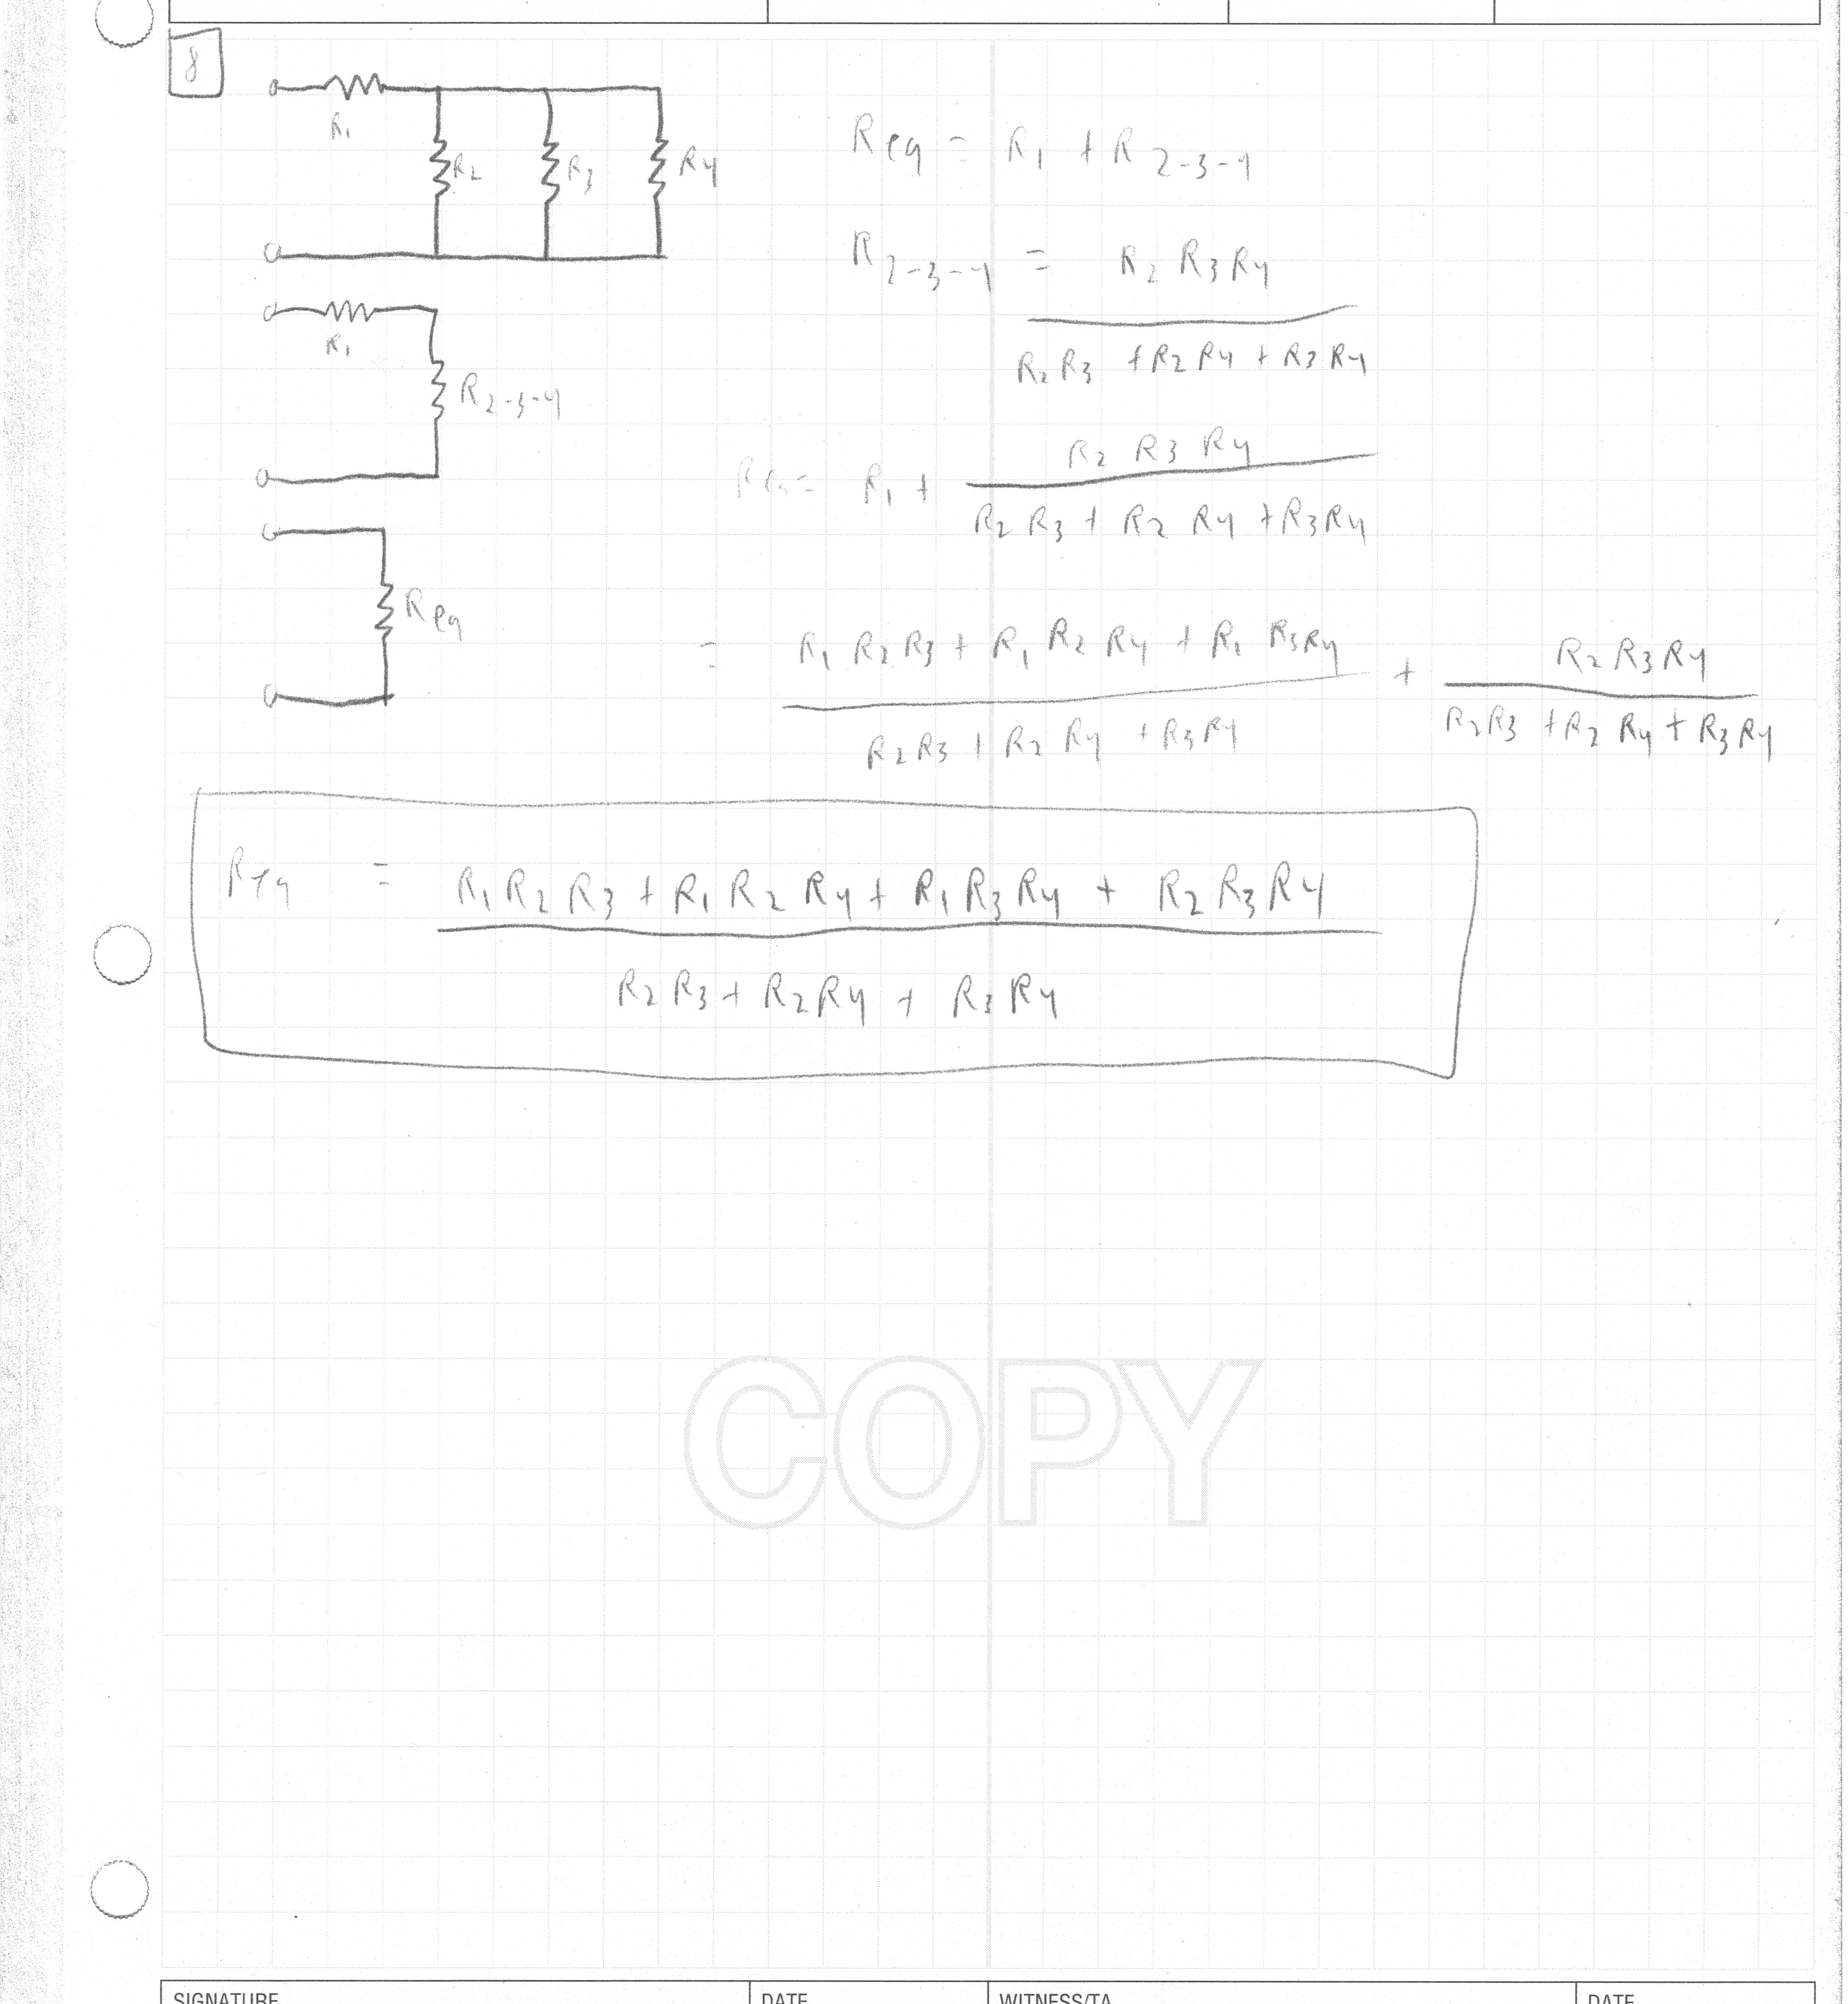 8
R1
R2
R3
R4
Req = R1 + R2-3-4
R2-3-4 = R2 R3 R4
R2 R3 + R2 R4 + R3 R4
R1
R2-3-4
Req = R1 + R2 R3 R4
R2 R3 + R2 R4 + R3 R4
Req
= R1 R2 R3 + R1 R2 R4 + R1 R3 R4 + R2 R3 R4
R2 R3 + R2 R4 + R3 R4 R2 R3 + R2 R4 + R3 R4
Req = R1 R2 R3 + R1 R2 R4 + R1 R3 R4 + R2 R3 R4
R2 R3 + R2 R4 + R3 R4
COPY
SIGNATURE DATE WITNESS/TA DATE